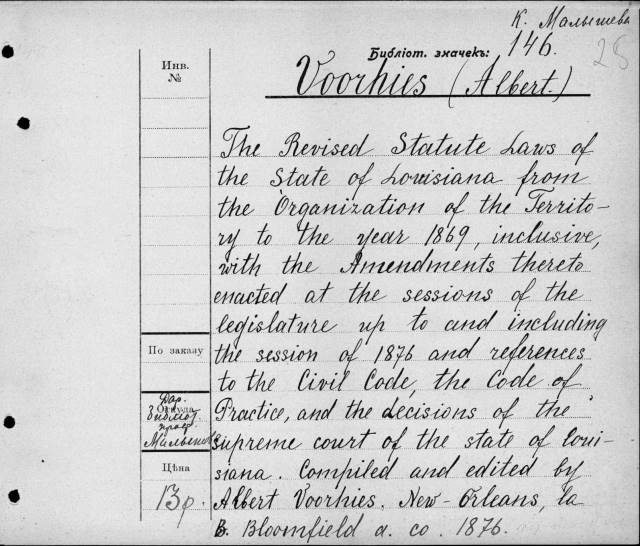 К. Малышева
146.
28
Библіот. значекъ:
Инв.
№
Voorhies (Albert.)
The Revised Statute Laws of
the State of Louisiana from
the Organization of the Territo-
ry to the year 1869, inclusive,
with the Amendments thereto
enacted at the sessions of the
legislature up to and including
the session of 1876 and references
to the Civil Code, the Code of
Practice, and the decisions of the
supreme court of the state of Loui-
siana. Compiled and edited by
Albert Voorhies. New-Orleans, la
B. Bloomfield a. co. 1876.
По заказу
Дар.
Откуда
Библіот.
проф.
Малышева
Цѣна
13р.